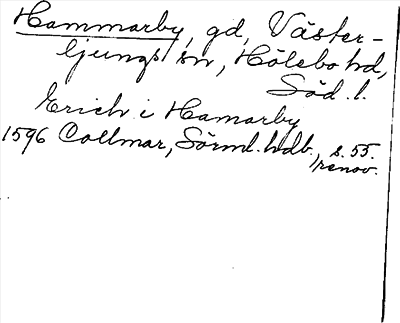 Hammarby, gd, Väster-
ljungs sn, Hölebo hd,
Söd. l.
Erich i Hamarby
1596 Collmar, Sörml. hdb., s. 55.
renov.